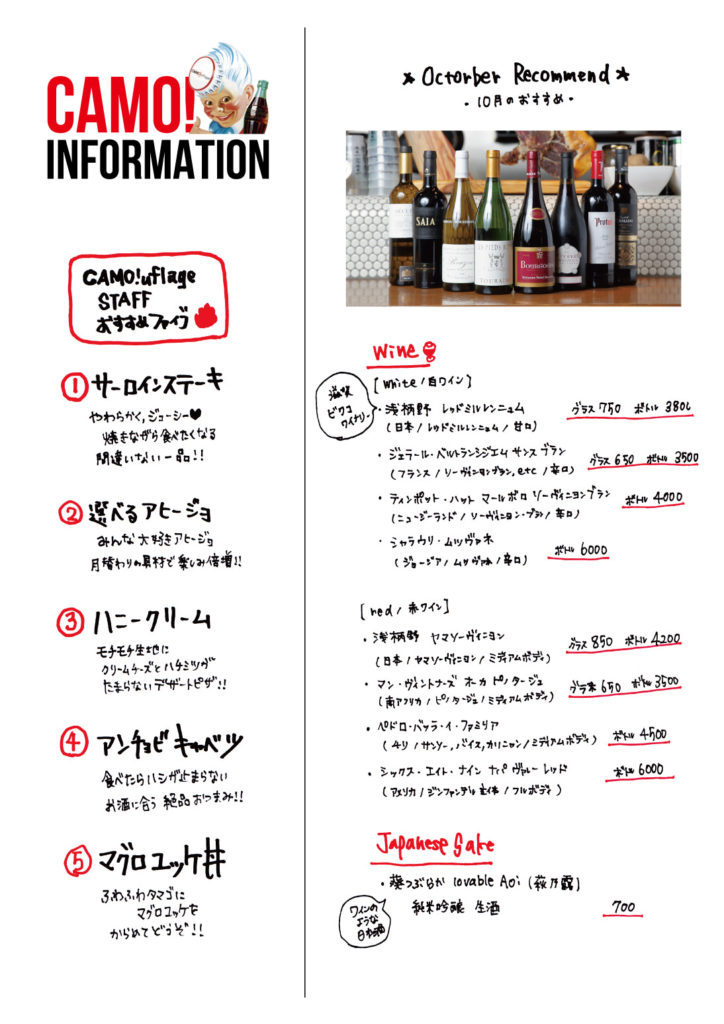 CAMO!
INFORMATION
CAMO!uflage
STAFF
おすすめファイブ
① サーロインステーキ
やわらかく、ジューシー♥
焼きながら食べたくなる
間違いない一品!!
② 選べるアヒージョ
みんな大好きアヒージョ
月替わりの具材で楽しみ倍増!!
③ ハニークリーム
モチモチ生地に
クリームチーズとハチミツが
たまらないデザートピザ!!
④ アンチョビキャベツ
食べたらハシが止まらない
お酒に合う絶品おつまみ!!
⑤ マグロユッケ丼
ふわふわタマゴに
マグロユッケを
からめてどうぞ!!
* Octorber Recommend *
- 10月のおすすめ -
SAIA
Protos
Wine
[White / 白ワイン]
滋賀
ビワコ
ワイナリー
・浅柄野 レッドミルレンニュム グラス 750 ボトル 3800
(日本 / レッドミルレンニュム / 甘口)
・ジェラール・ベルトランシジエム サンス ブラン グラス 650 ボトル 3500
(フランス / ソーヴィニヨンブラン, etc / 辛口)
・ティンポット・ハット マールボロ ソーヴィニヨンブラン ボトル 4000
(ニュージーランド / ソーヴィニヨン・ブラン / 辛口)
・シャラウリ・ムツヴァネ ボトル 6000
(ジョージア / ムツヴァネ / 辛口)
[red / 赤ワイン]
・浅柄野 ヤマソーヴィニヨン グラス 850 ボトル 4200
(日本 / ヤマソーヴィニヨン / ミディアムボディ)
・マン・ヴィントナーズ オーカ ピノタージュ グラス 650 ボトル 3500
(南アフリカ / ピノタージュ / ミディアムボディ)
・ペドロ・パッラ・イ・ファミリア ボトル 4500
(チリ / サンソー, パイス, カリニャン / ミディアムボディ)
・シックス・エイト・ナイン ナパ ヴァレー レッド ボトル 6000
(アメリカ / ジンファンデル主体 / フルボディ)
Japanese Sake
・葵つぶらか lovable Aoi (萩乃露)
純米吟醸 生酒 700
ワインの
ような
日本酒